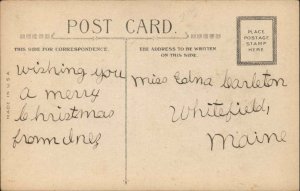 POST CARD.
THIS SIDE FOR CORRESPONDENCE.
THE ADDRESS TO BE WRITTEN
ON THIS SIDE.
PLACE
POSTAGE
STAMP
HERE
MADE IN U.S.A.
wishing you
a merry
Christmas
from Inez
Miss Edna Carleton
Whitefield,
Maine